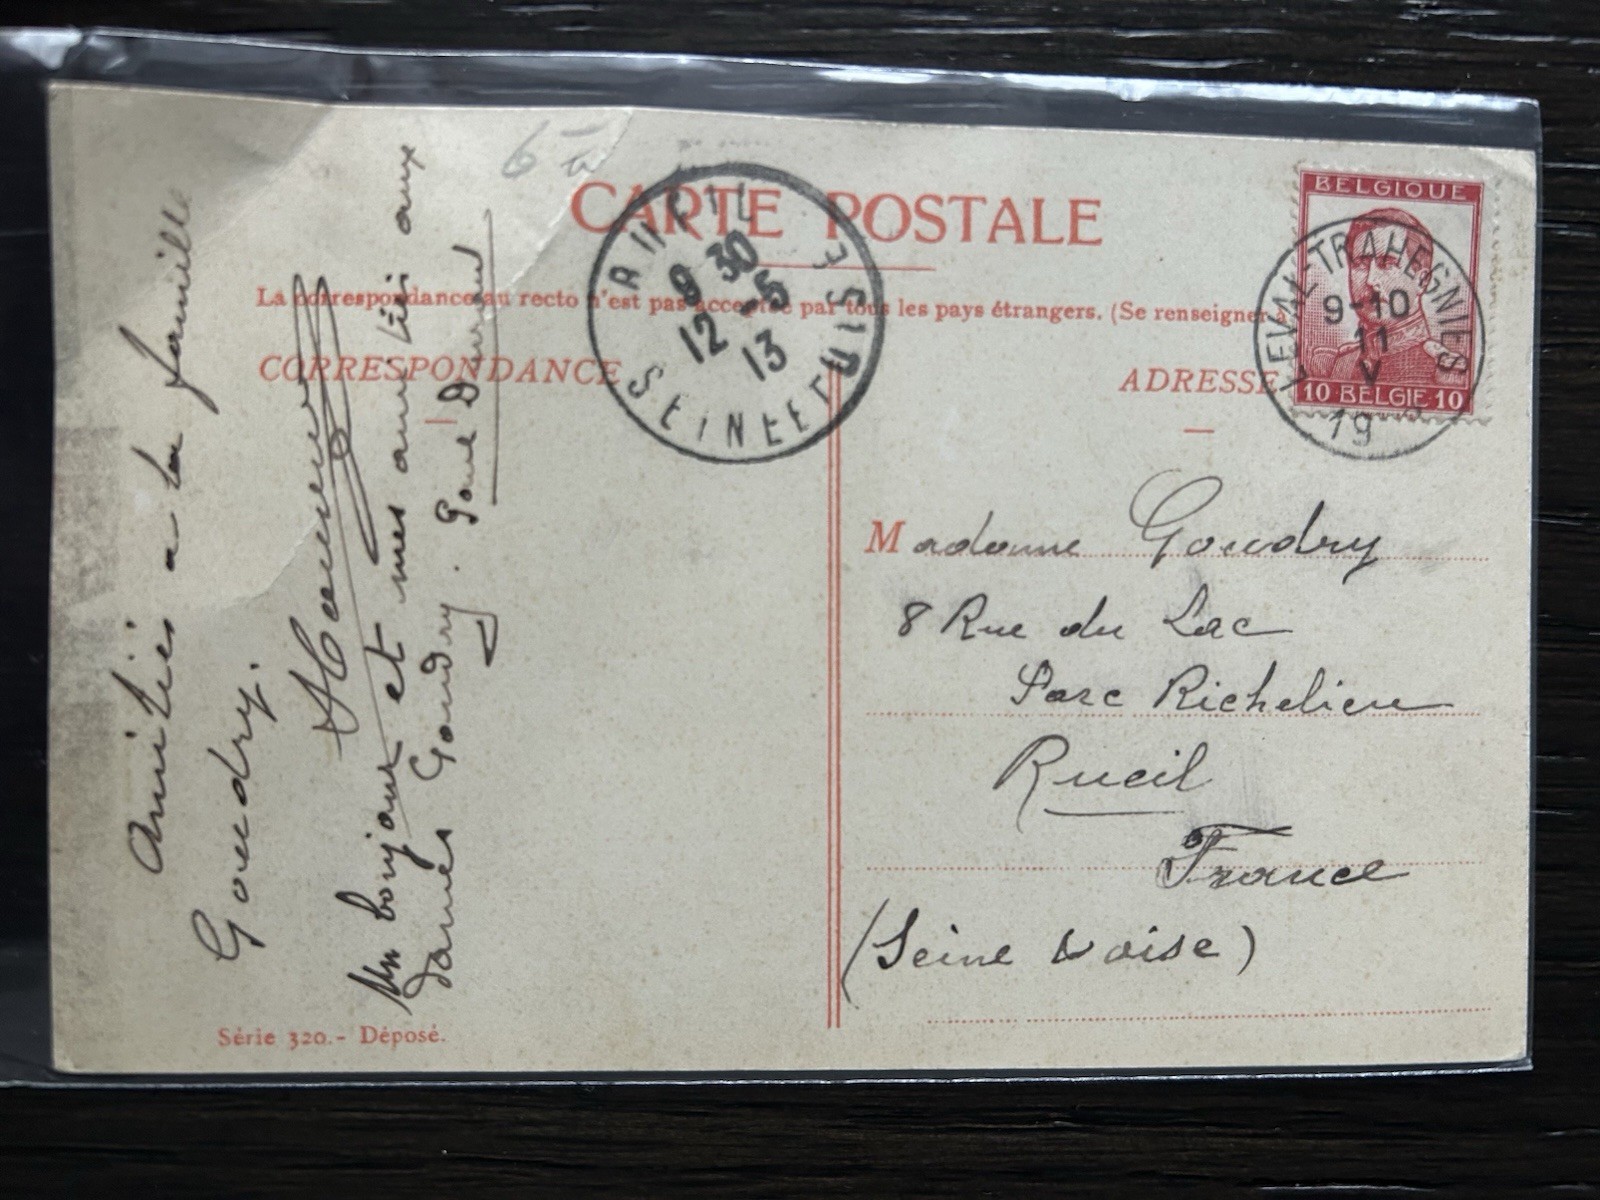 6
CARTE POSTALE
La correspondance au recto n'est pas acceptée par tous les pays étrangers. (Se renseigner à
CORRESPONDANCE
ADRESSE
RUEIL
9 30
12 -5
13
SEINE ET OISE
BELGIQUE
10 BELGIE 10
LEVAL-TRAHEGNIES
9-10
11
V
19
Amitiés a la famille
Goudry.
Un bonjour et mes amitiés aux
dames Goudry.
Madame Goudry
8 Rue du Lac
Parc Richelieu
Rueil
France
(Seine & oise)
Série 320.- Déposé.